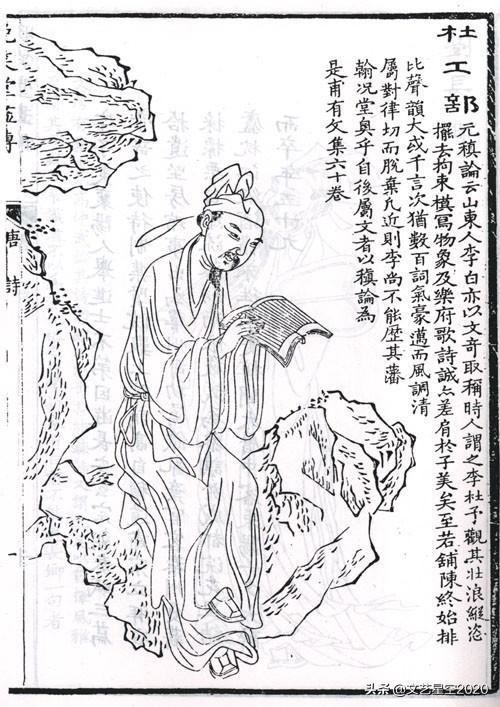 杜工部
元稹論云山東人李白亦以文奇取稱時人謂之李杜予觀其壯浪縱恣
擺去拘束模寫物象及樂府歌詩誠亦差肩於子美矣至若舖陳終始排
比聲韻大或千言次猶數百詞氣豪邁而風調清
屬對律切而脫棄凡近則李尚不能歷其藩
翰况堂奧乎自後屬文者以稹論為
是甫有文集六十卷
笑堂畫傳
唐詩
一
头条@文艺星空2020